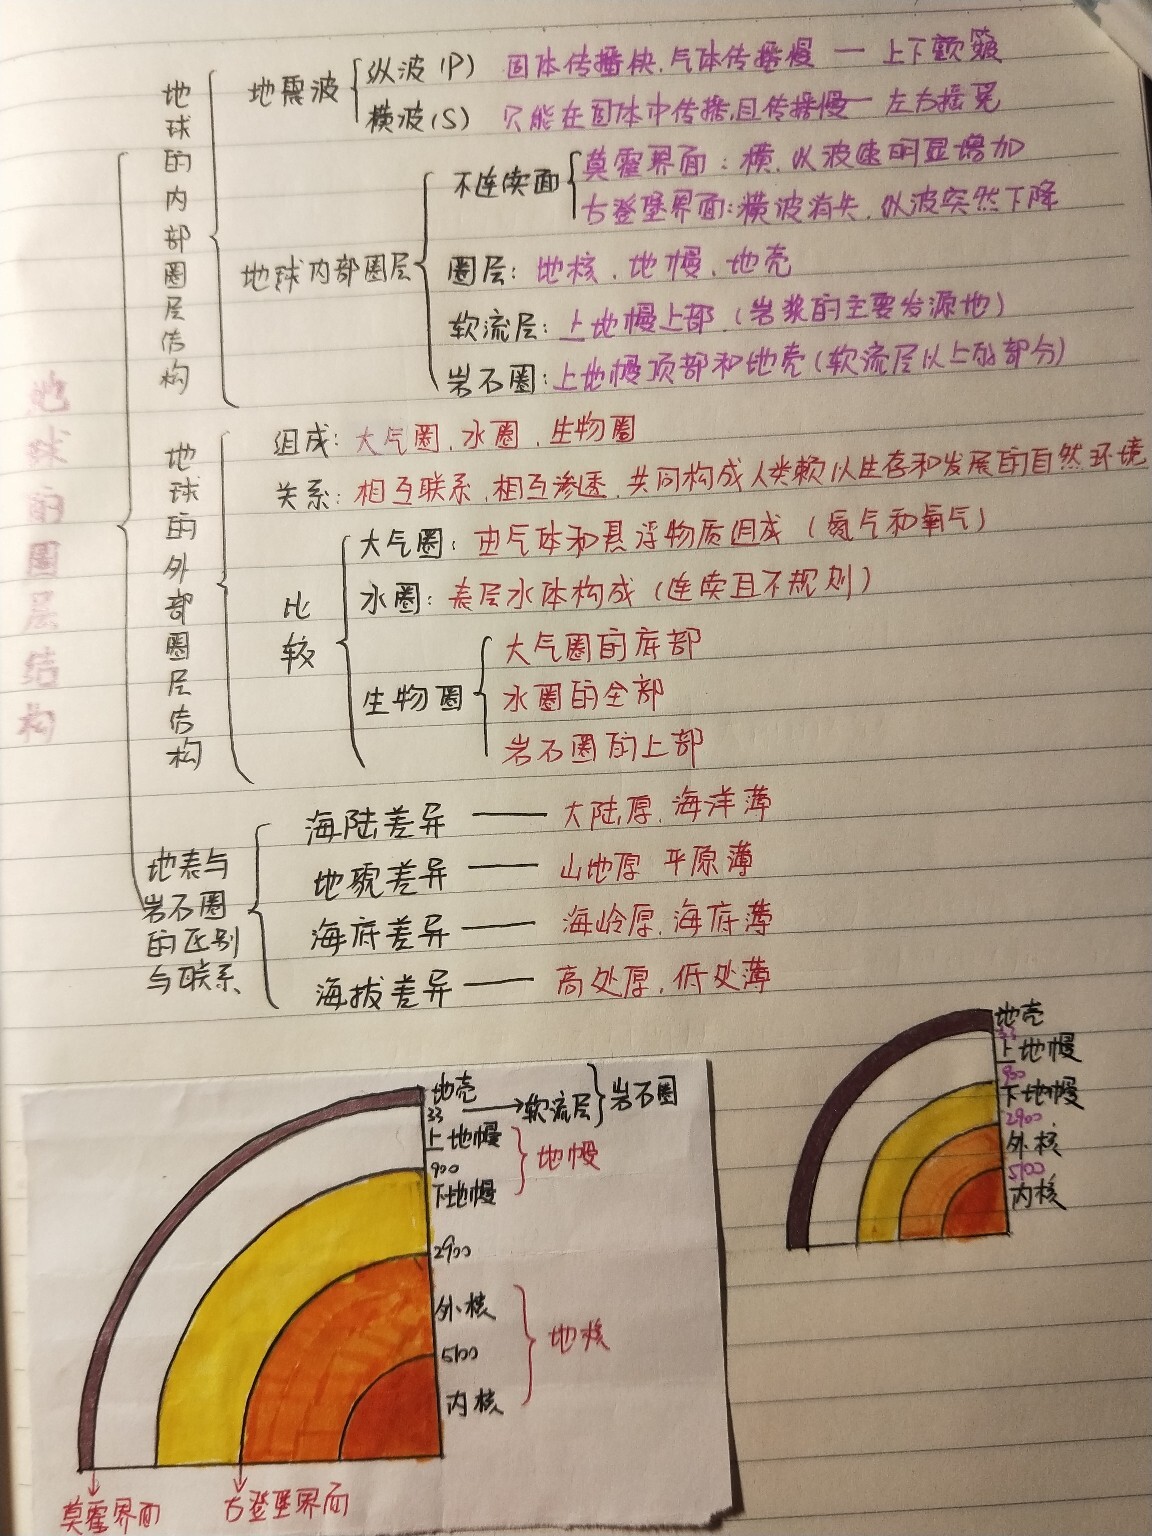 地球的圈层结构
地球的内部圈层结构
地震波
纵波(P) 固体传播快,气体传播慢 — 上下颠簸
横波(S) 只能在固体中传播,且传播慢 — 左右摇晃
地球内部圈层
不连续面
莫霍界面：横、纵波速明显增加
古登堡界面：横波消失，纵波突然下降
圈层：地核、地幔、地壳
软流层：上地幔上部（岩浆的主要发源地）
岩石圈：上地幔顶部和地壳（软流层以上的部分）
地球的外部圈层结构
组成：大气圈、水圈、生物圈
关系：相互联系,相互渗透,共同构成人类赖以生存和发展的自然环境
比较
大气圈：由气体和悬浮物质组成（氮气和氧气）
水圈：表层水体构成（连续且不规则）
生物圈
大气圈的底部
水圈的全部
岩石圈的上部
地表与岩石圈的区别与联系
海陆差异 —— 大陆厚,海洋薄
地貌差异 —— 山地厚 平原薄
海底差异 —— 海岭厚,海底薄
海拔差异 —— 高处厚,低处薄
地壳
33
上地幔
900
下地幔
2900
外核
5100
内核
地壳
33 → 软流层
岩石圈
上地幔
900
下地幔
地幔
2900
外核
5100
内核
地核
莫霍界面
古登堡界面